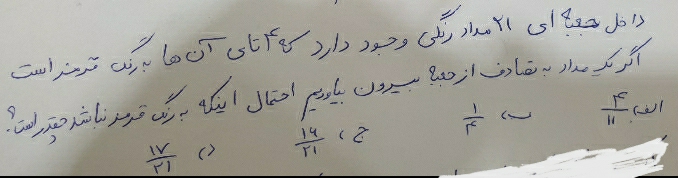 داخل جعبه ای ۲۱ مداد رنگی وجود دارد که ۴ تای آن ها به رنگ قرمز است
اگر یک مداد به تصادف از جعبه بیرون بیاوریم احتمال اینکه به رنگ قرمز نباشد چقدر است؟
الف) ۴/۱۱ ب) ۱/۴ ج) ۱۶/۲۱ د) ۱۷/۲۱